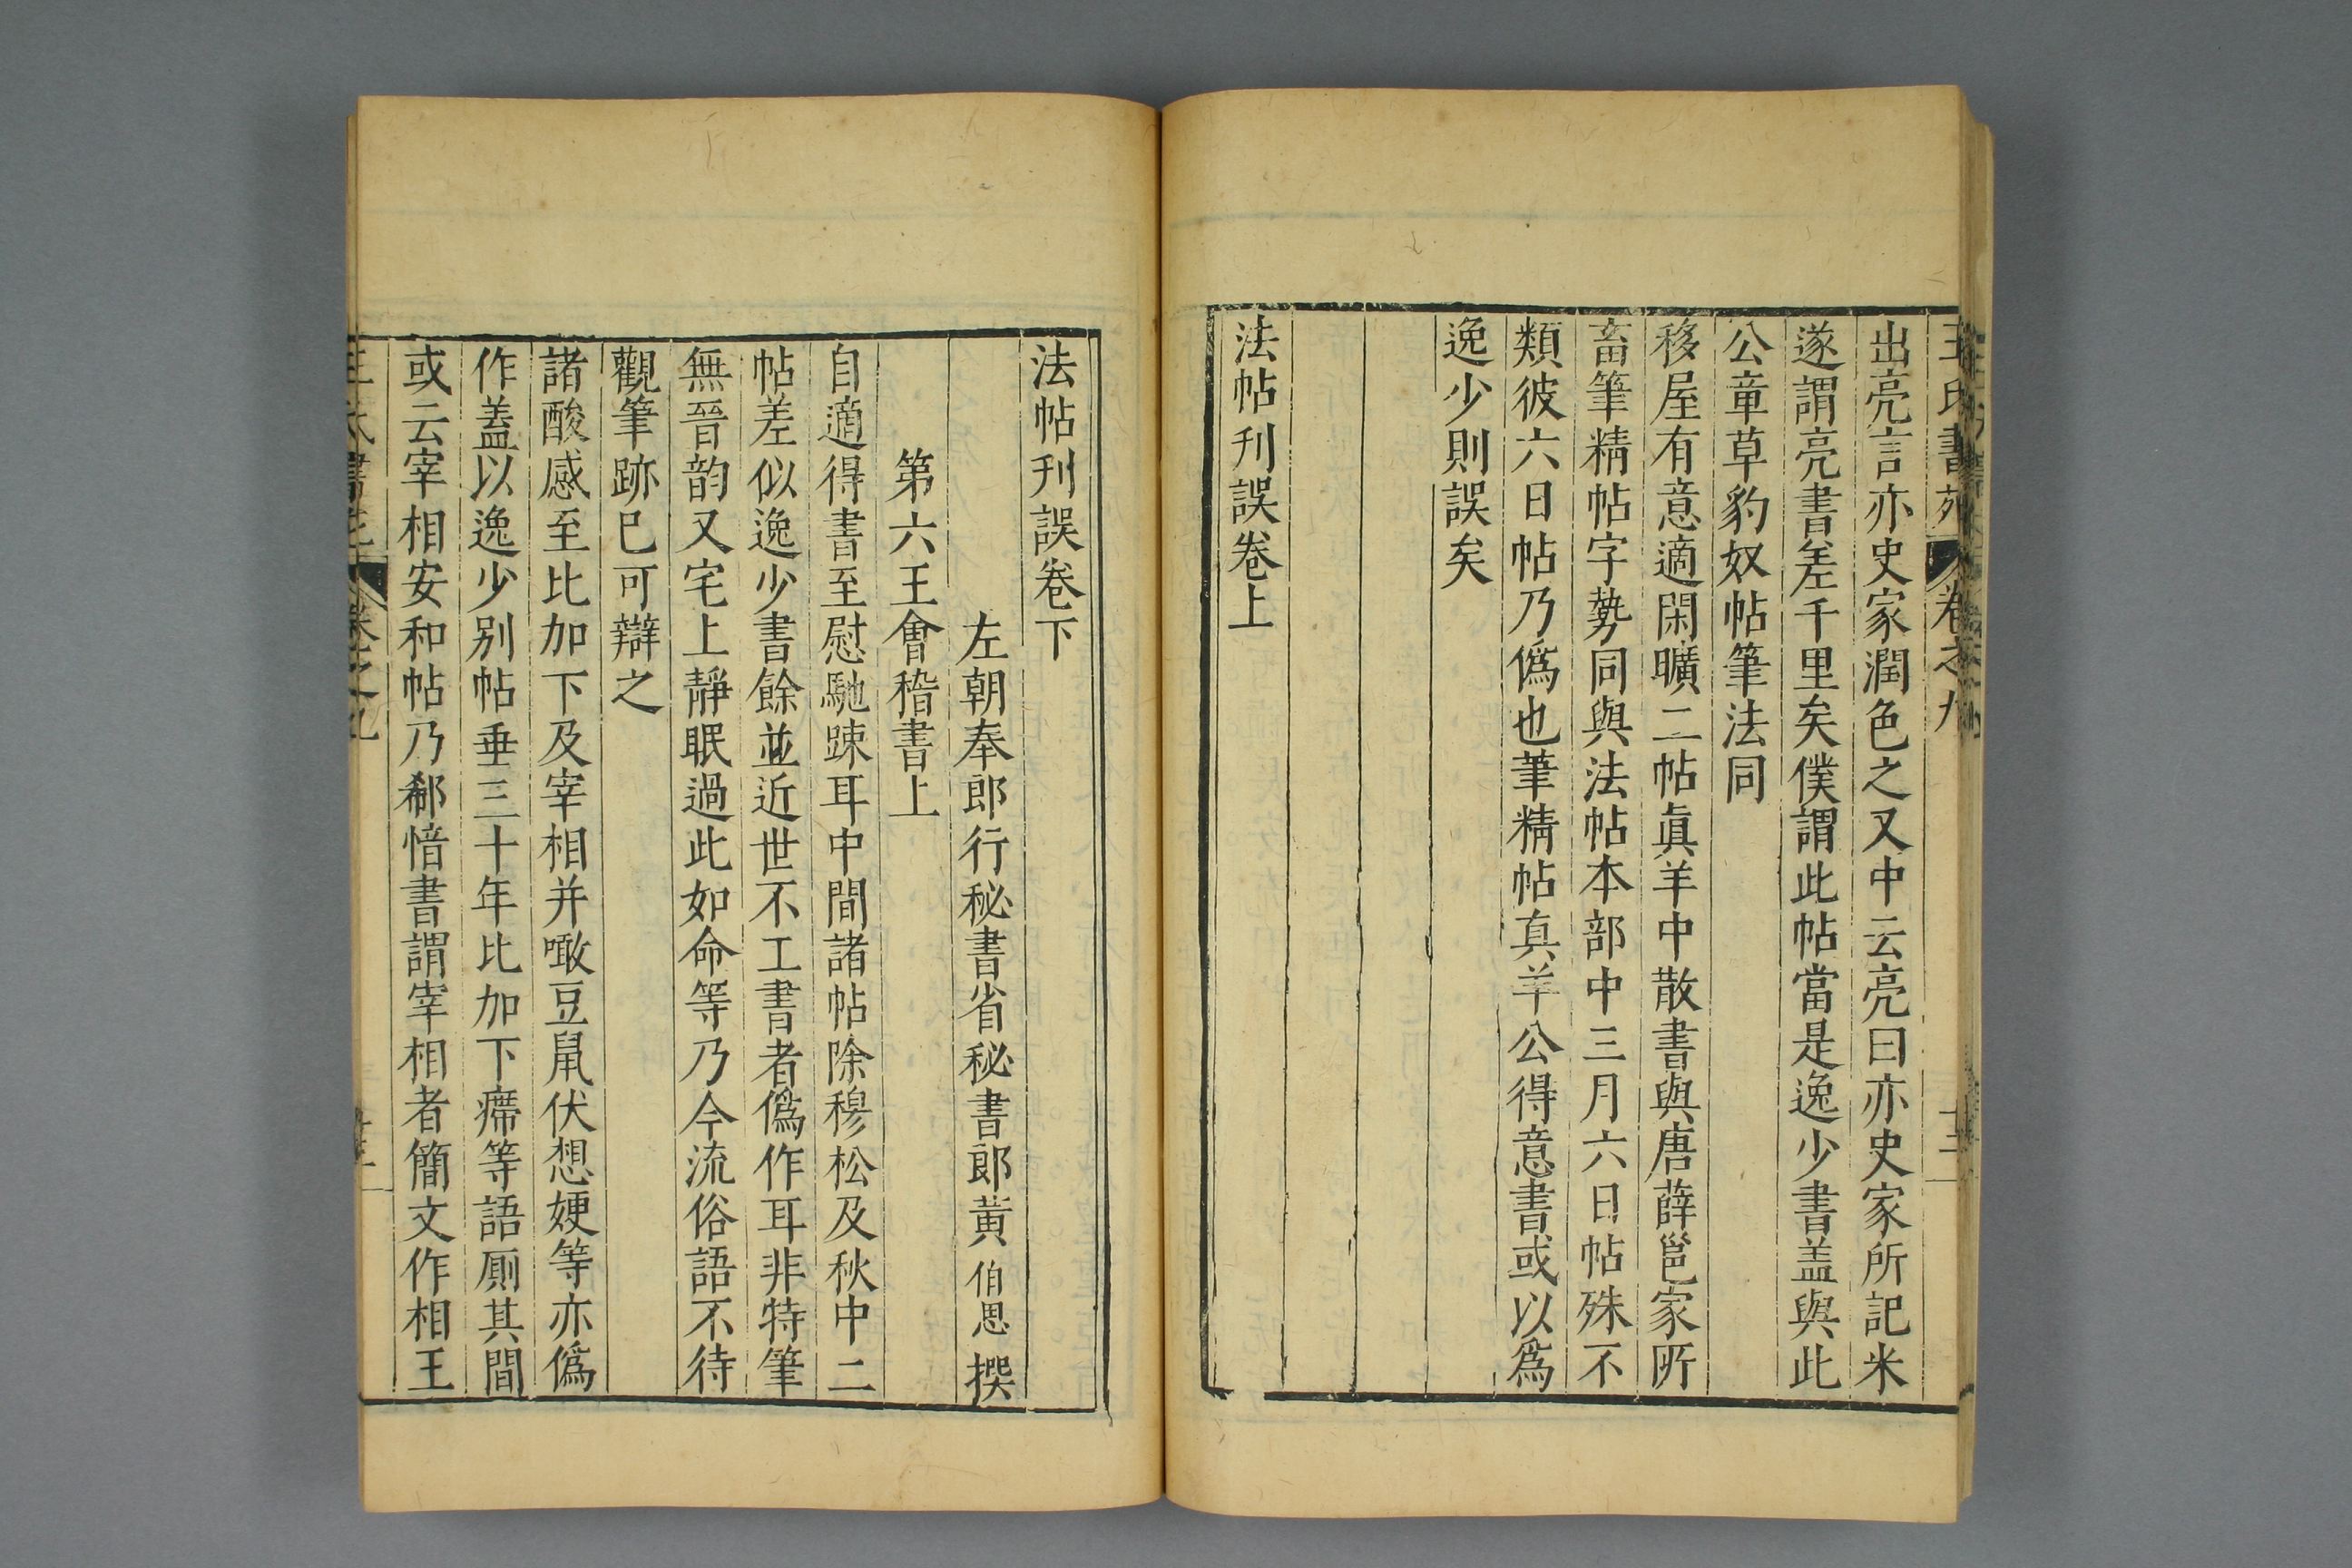 王氏書苑 卷之九 十三
出亮言亦史家潤色之又中云亮曰亦史家所記米
遂謂亮書差千里矣僕謂此帖當是逸少書盖與此
公章草豹奴帖筆法同
移屋有意適閑曠二帖眞羊中散書與唐薛邕家所
畜筆精帖字勢同與法帖本部中三月六日帖殊不
類彼六日帖乃僞也筆精帖真羊公得意書或以爲
逸少則誤矣
法帖刊誤卷上
法帖刊誤卷下
左朝奉郎行秘書省秘書郎黃伯思撰
第六王會稽書上
自適得書至慰馳竦耳中間諸帖除穆松及秋中二
帖差似逸少書餘並近世不工書者僞作耳非特筆
無晉韵又宅上靜眠過此如命等乃今流俗語不待
觀筆跡已可辯之
諸酸感至比加下及宰相并噉豆鼠伏想嫂等亦僞
作蓋以逸少别帖垂三十年比加下癠等語廁其間
或云宰相安和帖乃郗愔書謂宰相者簡文作相王
王氏書苑 卷之九